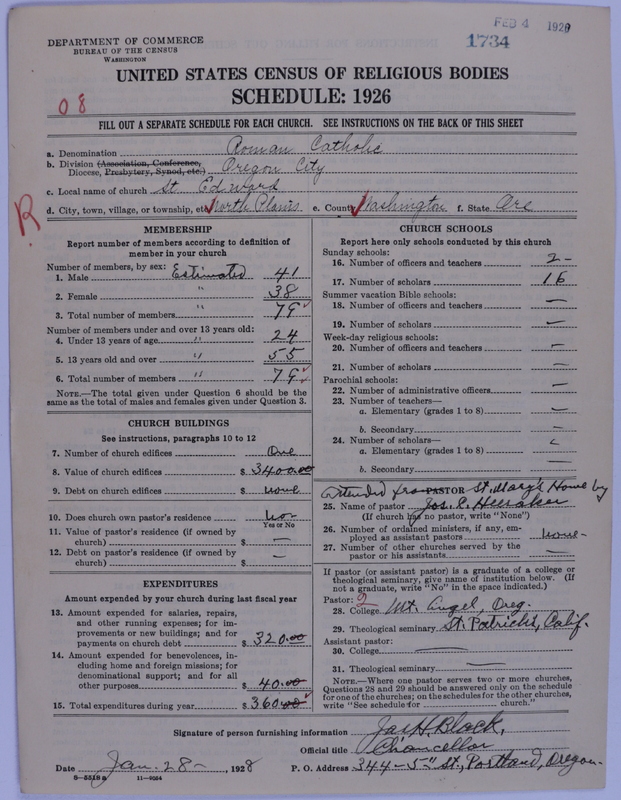 FEB 4 1929
1734
DEPARTMENT OF COMMERCE
BUREAU OF THE CENSUS
WASHINGTON
UNITED STATES CENSUS OF RELIGIOUS BODIES
SCHEDULE: 1926
08
FILL OUT A SEPARATE SCHEDULE FOR EACH CHURCH. SEE INSTRUCTIONS ON THE BACK OF THIS SHEET
a. Denomination Roman Catholic
b. Division (Association, Conference,
Diocese, Presbytery, Synod, etc.) Oregon City
c. Local name of church St Edward
R
d. City, town, village, or township, etc. North Plains e. County Washington f. State Ore
MEMBERSHIP
Report number of members according to definition of
member in your church
Number of members, by sex: Estimated
1. Male 41
2. Female " 38
3. Total number of members " 79
Number of members under and over 13 years old:
4. Under 13 years of age " 24
5. 13 years old and over " 55
6. Total number of members " 79
NOTE.—The total given under Question 6 should be
same as the total of males and females given under Question 3.
CHURCH BUILDINGS
See instructions, paragraphs 10 to 12
7. Number of church edifices One
8. Value of church edifices $ 3400.00
9. Debt on church edifices $ none
10. Does church own pastor's residence no
Yes or No
11. Value of pastor's residence (if owned by
church) $ —
12. Debt on pastor's residence (if owned by
church) $ —
EXPENDITURES
Amount expended by your church during last fiscal year
13. Amount expended for salaries, repairs,
and other running expenses; for im-
provements or new buildings; and for
payments on church debt $ 320.00
14. Amount expended for benevolences, in-
cluding home and foreign missions; for
denominational support; and for all
other purposes $ 40.00
15. Total expenditures during year $ 360.00
CHURCH SCHOOLS
Report here only schools conducted by this church
Sunday schools:
16. Number of officers and teachers 2 —
17. Number of scholars 16
Summer vacation Bible schools:
18. Number of officers and teachers —
19. Number of scholars —
Week-day religious schools:
20. Number of officers and teachers —
21. Number of scholars —
Parochial schools:
22. Number of administrative officers —
23. Number of teachers—
a. Elementary (grades 1 to 8) —
b. Secondary —
24. Number of scholars—
a. Elementary (grades 1 to 8)
b. Secondary —
attended from PASTOR St. Mary's Home by
25. Name of pastor Jos. R.
(If church has no pastor, write "None")
26. Number of ordained ministers, if any, em-
ployed as assistant pastors none —
27. Number of other churches served by the
pastor or his assistants —
If pastor (or assistant pastor) is a graduate of a college or
theological seminary, give name of institution below. (If
not a graduate, write "No" in the space indicated.)
Pastor: 2
28. College Mt. Angel, Oreg.
29. Theological seminary St. Patricks, Calif.
Assistant pastor:
30. College —
31. Theological seminary —
NOTE.—Where one pastor serves two or more churches,
Questions 28 and 29 should be answered only on the schedule
for one of the churches; on the schedules for the other churches,
write "See schedule for church."
Signature of person furnishing information Jas. H. Black,
Official title Chancellor
Date Jan. 28 — , 1928 P. O. Address 344 - 5" St., Portland, Oregon.
8—5518a 11—9054